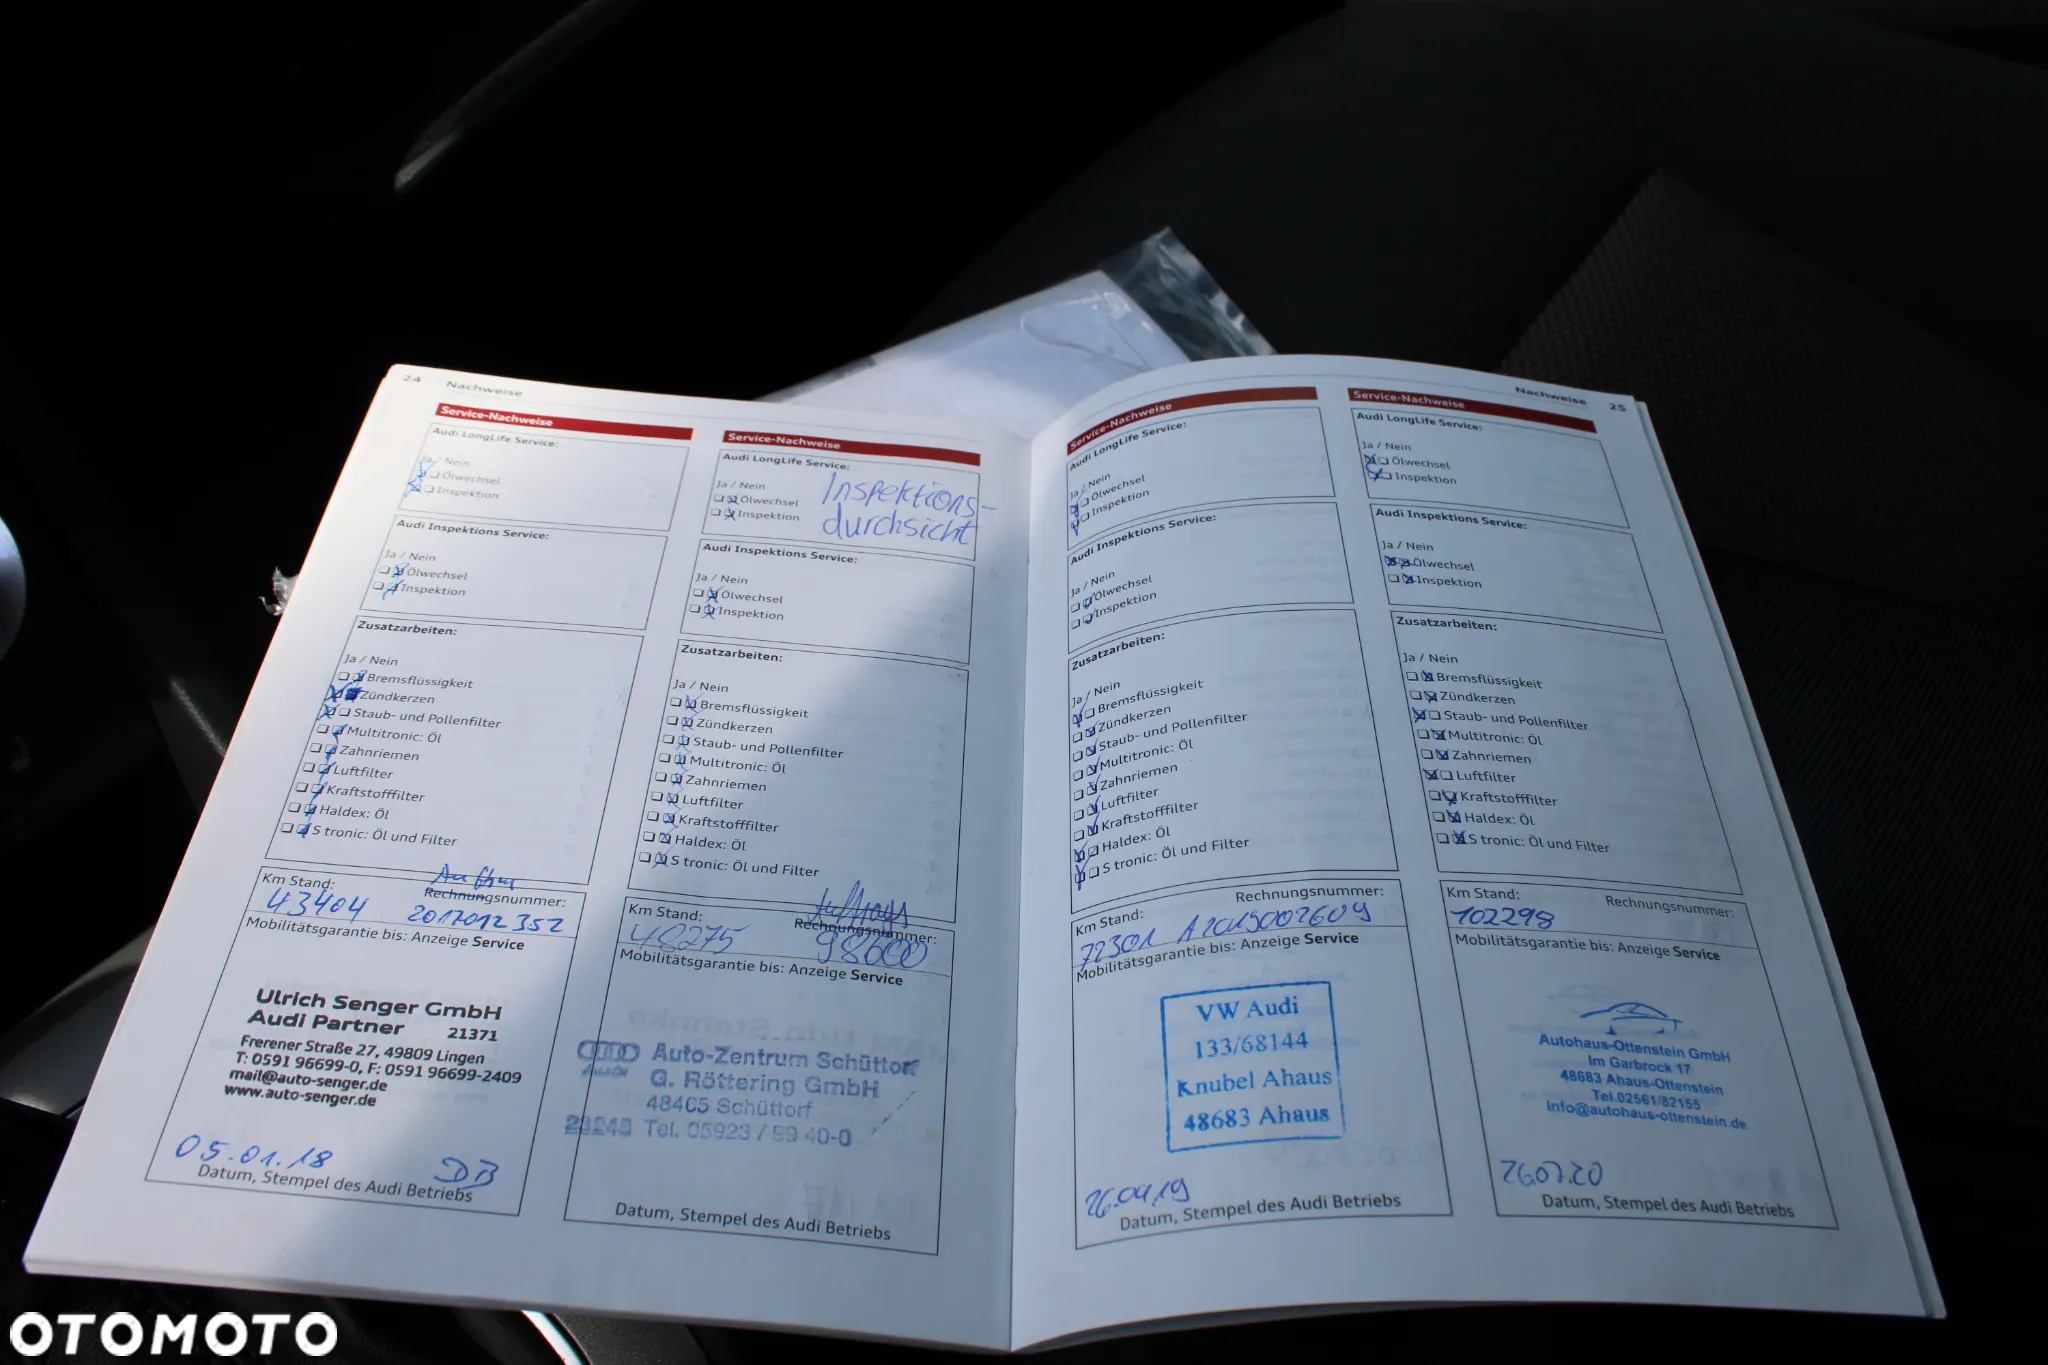 24 Nachweise
Service-Nachweise
Audi LongLife Service:
Ja / Nein
Ölwechsel
Inspektion
Audi Inspektions Service:
Ja / Nein
Ölwechsel
Inspektion
Zusatzarbeiten:
Ja / Nein
Bremsflüssigkeit
Zündkerzen
Staub- und Pollenfilter
Multitronic: Öl
Zahnriemen
Luftfilter
Kraftstofffilter
Haldex: Öl
S tronic: Öl und Filter
Km Stand: Rechnungsnummer:
43404 2017012352
Mobilitätsgarantie bis: Anzeige Service
Ulrich Senger GmbH
Audi Partner 21371
Frerener Straße 27, 49809 Lingen
T: 0591 96699-0, F: 0591 96699-2409
mail@auto-senger.de
www.auto-senger.de
05.01.18 DB
Datum, Stempel des Audi Betriebs
Service-Nachweise
Audi LongLife Service:
Ja / Nein
Ölwechsel
Inspektion
Inspektions-
durchsicht
Audi Inspektions Service:
Ja / Nein
Ölwechsel
Inspektion
Zusatzarbeiten:
Ja / Nein
Bremsflüssigkeit
Zündkerzen
Staub- und Pollenfilter
Multitronic: Öl
Zahnriemen
Luftfilter
Kraftstofffilter
Haldex: Öl
S tronic: Öl und Filter
Km Stand: Rechnungsnummer:
48275 98600
Mobilitätsgarantie bis: Anzeige Service
Audi Auto-Zentrum Schüttorf
G. Röttering GmbH
48465 Schüttorf
Tel. 05923 / 99 40-0
Datum, Stempel des Audi Betriebs
Nachweise 25
Service-Nachweise
Audi LongLife Service:
Ja / Nein
Ölwechsel
Inspektion
Audi Inspektions Service:
Ja / Nein
Ölwechsel
Inspektion
Zusatzarbeiten:
Ja / Nein
Bremsflüssigkeit
Zündkerzen
Staub- und Pollenfilter
Multitronic: Öl
Zahnriemen
Luftfilter
Kraftstofffilter
Haldex: Öl
S tronic: Öl und Filter
Km Stand: Rechnungsnummer:
72301 A2019002609
Mobilitätsgarantie bis: Anzeige Service
VW Audi
133/68144
Knubel Ahaus
48683 Ahaus
26.04.19
Datum, Stempel des Audi Betriebs
Service-Nachweise
Audi LongLife Service:
Ja / Nein
Ölwechsel
Inspektion
Audi Inspektions Service:
Ja / Nein
Ölwechsel
Inspektion
Zusatzarbeiten:
Ja / Nein
Bremsflüssigkeit
Zündkerzen
Staub- und Pollenfilter
Multitronic: Öl
Zahnriemen
Luftfilter
Kraftstofffilter
Haldex: Öl
S tronic: Öl und Filter
Km Stand: Rechnungsnummer:
102298
Mobilitätsgarantie bis: Anzeige Service
Autohaus-Ottenstein GmbH
Im Garbrock 17
48683 Ahaus-Ottenstein
Tel.02561/82155
Info@autohaus-ottenstein.de
26.07.20
Datum, Stempel des Audi Betriebs
OTOMOTO